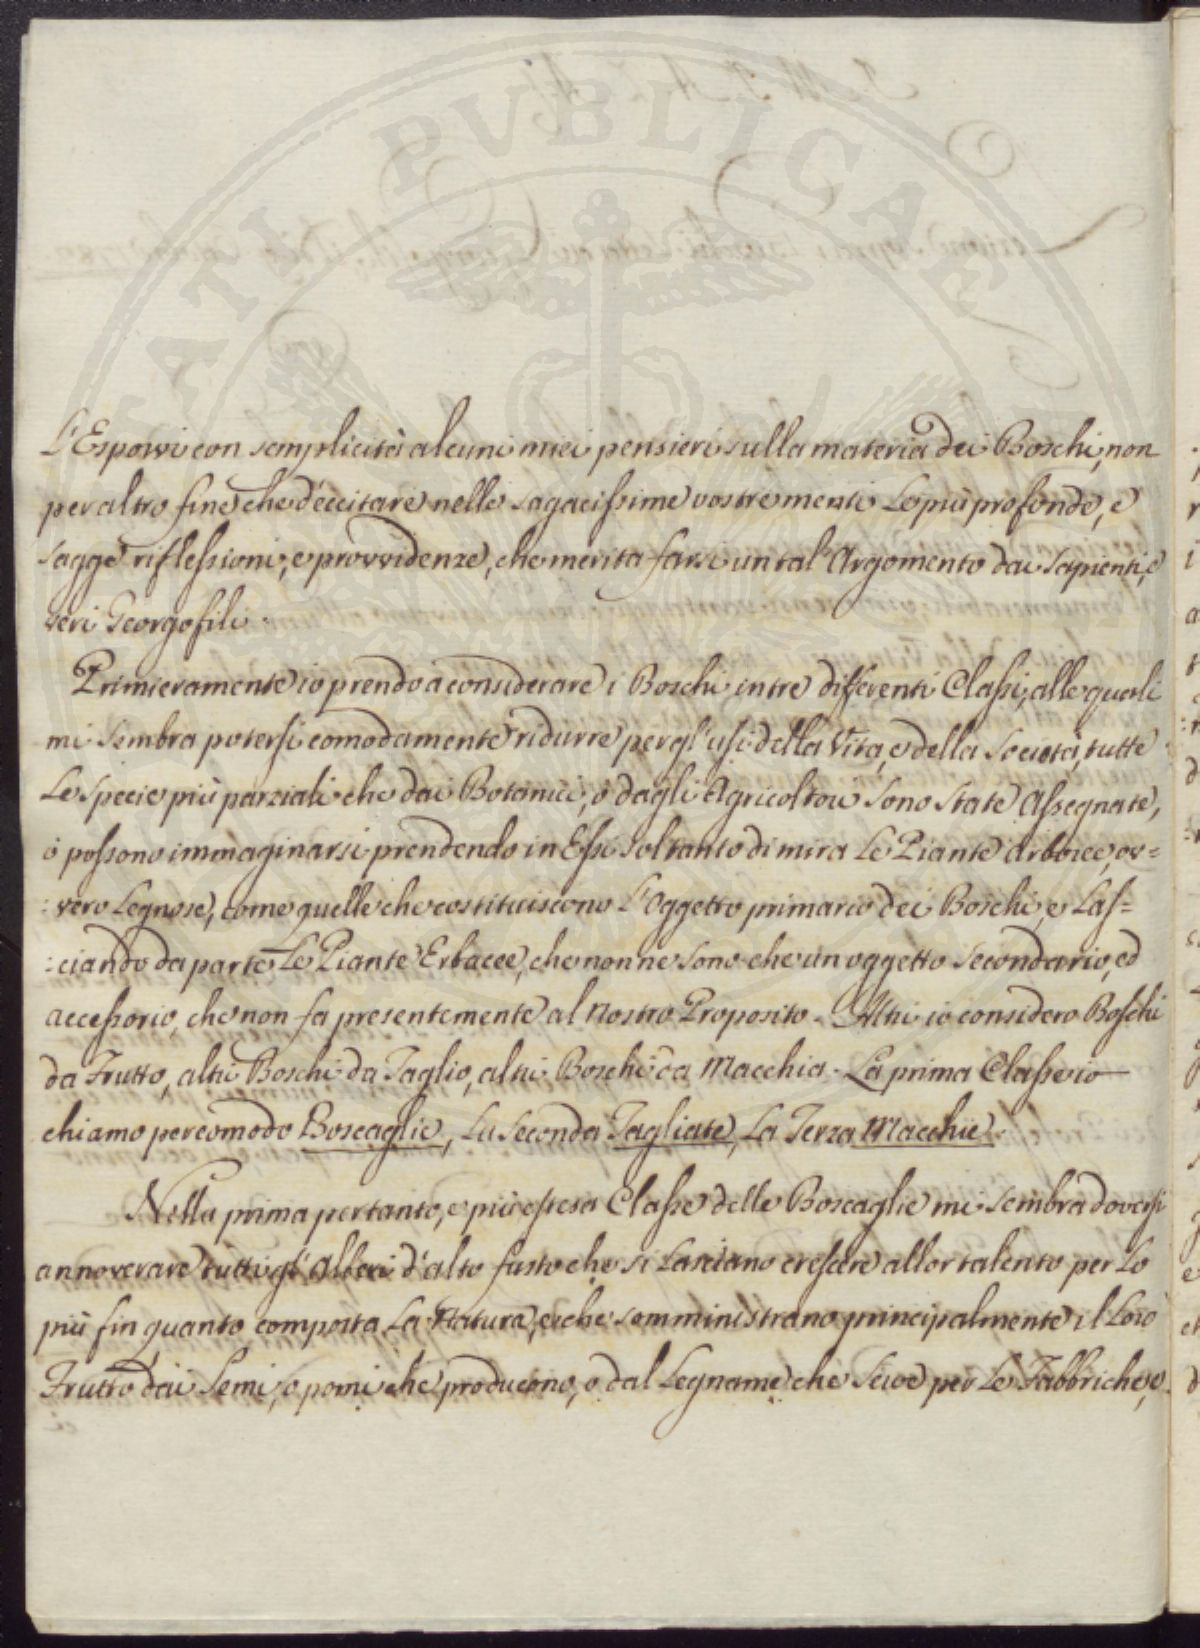 L'Esporvi con semplicità alcuni miei pensieri sulla materia dei Boschi, non
per altro fine che d'eccitare nelle sagacissime vostre menti Le più profonde, e
sagge riflessioni, e provvidenze, che merita farsi un tal'Argomento dai Sapienti, e
veri Georgofili.
Primieramente io prendo à considerare i Boschi in tre differenti Classi, alle quali
mi sembra potersi comodamente ridurre per gl'usi della Vita, e della Società, tutte
Le specie più parziali che dai Botanici, o dagli Agricoltori sono state Assegnate,
ò possono immaginarsi prendendo in Essi soltanto di mira Le Piante Arboree, ov=
:vero Legnose, come quelle che costituiscono L'Oggetto primario dei Boschi, e Las=
:ciando da parte Le Piante Erbacee, che non ne sono che un oggetto secondario, ed
accessorio, che non fa presentemente al nostro Proposito. Altri io considero Boschi
da Frutto, altri Boschi da Taglio, altri Boschi da Macchia. La prima Classe io
chiamo per comodo Boscaglie, La seconda Tagliate, La Terza Macchie.
Nella prima pertanto, e più estesa Classe delle Boscaglie mi sembra doversi
annoverare tutti gl'Alberi d'alto fusto che si Lasciano crescere al lor talento per Lo
più fin quanto comporta La Natura, e che somministrano principalmente il Loro
Frutto dai Semi, o pomi che producono, o dal Legname che Serve per Le Fabbriche, e
PUBLICAE